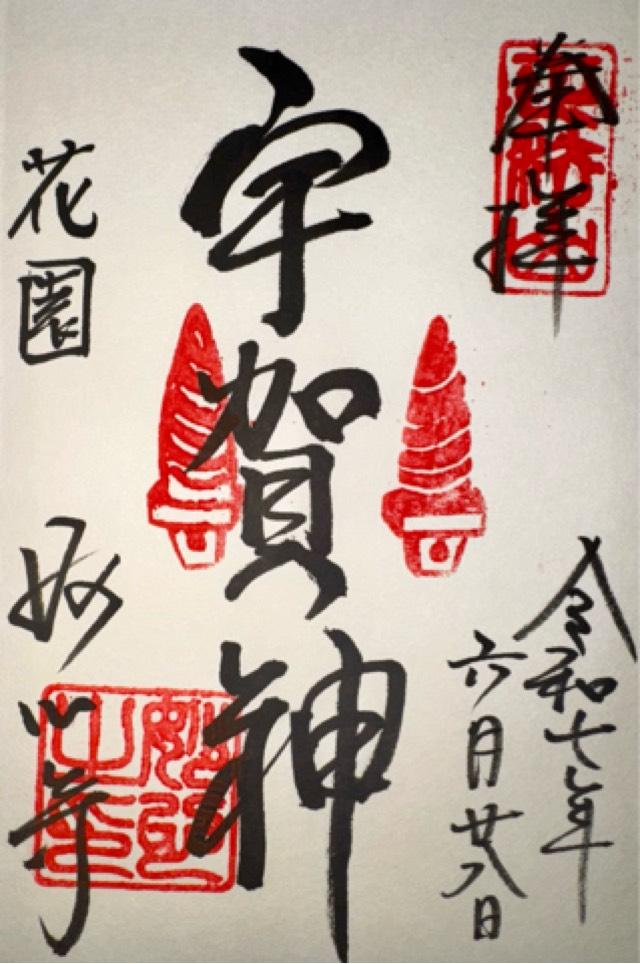 奉拝
令和七年
六月廿八日
宇賀神
花園 妙心寺